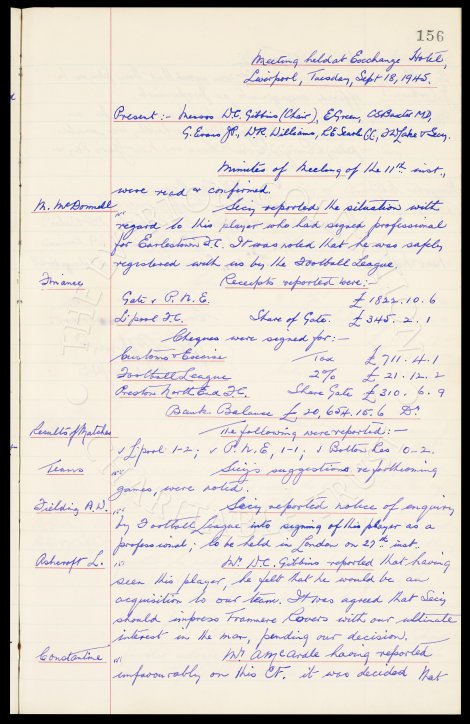 156
Meeting held at Exchange Hotel,
Liverpool, Tuesday, Sept 18, 1945.
Present :- Messrs W.C. Gibbins (Chair), E Green, CS Baxter MD,
G. Evans JP, W.R. Williams, R E Searle CC, & Secy.
Minutes of Meeting of the 11th inst.,
were read & confirmed.
M. McDonnell Secy reported the situation with
regard to this player who had signed professional
for Earlestown F.C. It was noted that he was safely
registered with us by the Football League.
Finance Receipts reported were:-
Gate v P.N.E. £1822.10.6
L'pool F.C. Share of Gate. £345.2.1
Cheques were signed for:-
Customs & Excise Tax £711.4.1
Football League 2% £21.12.2
Preston North End F.C. Share Gate £310.6.9
Bank Balance £20,654.15.6 Dr.
Results of Matches The following were reported:-
v L'pool 1-2; v P.N.E, 1-1; v Bolton Res 0-2.
Teams Secy's suggestions re forthcoming
games, were noted.
Fielding A.W. Secy reported notice of enquiry
by Football League into signing of this player as a
professional; to be held in London on 27th inst.
Ashcroft L. Mr. W.C. Gibbins reported that having
seen this player, he felt that he would be an
acquisition to our team. It was agreed that Secy
should impress Tranmere Rovers with our ultimate
interest in the man, pending our decision.
Constantine Mr. A McArdle having reported
unfavourably on this CF. it was decided that